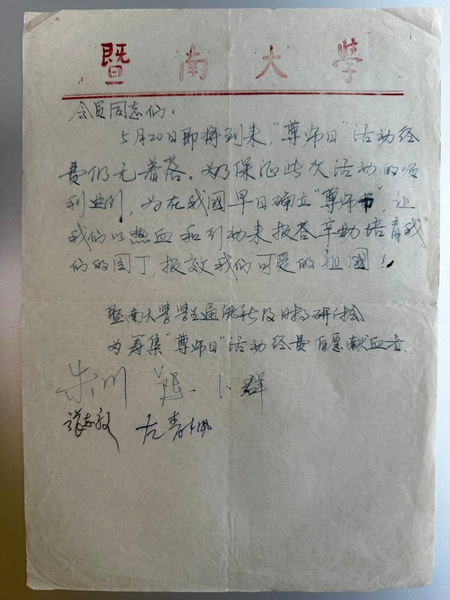 暨南大学
会员同志们:
5月20日即将到来,"尊师日"活动经
费仍无着落。为保证此次活动的顺
利进行,为在我国早日确立"尊师节",让
我们以热血和行动来报答辛勤培育我
们的园丁,报效我们可爱的祖国!
暨南大学学生通讯社及时事研讨会
为筹集"尊师日"活动经费自愿献血者
朱川 卜群